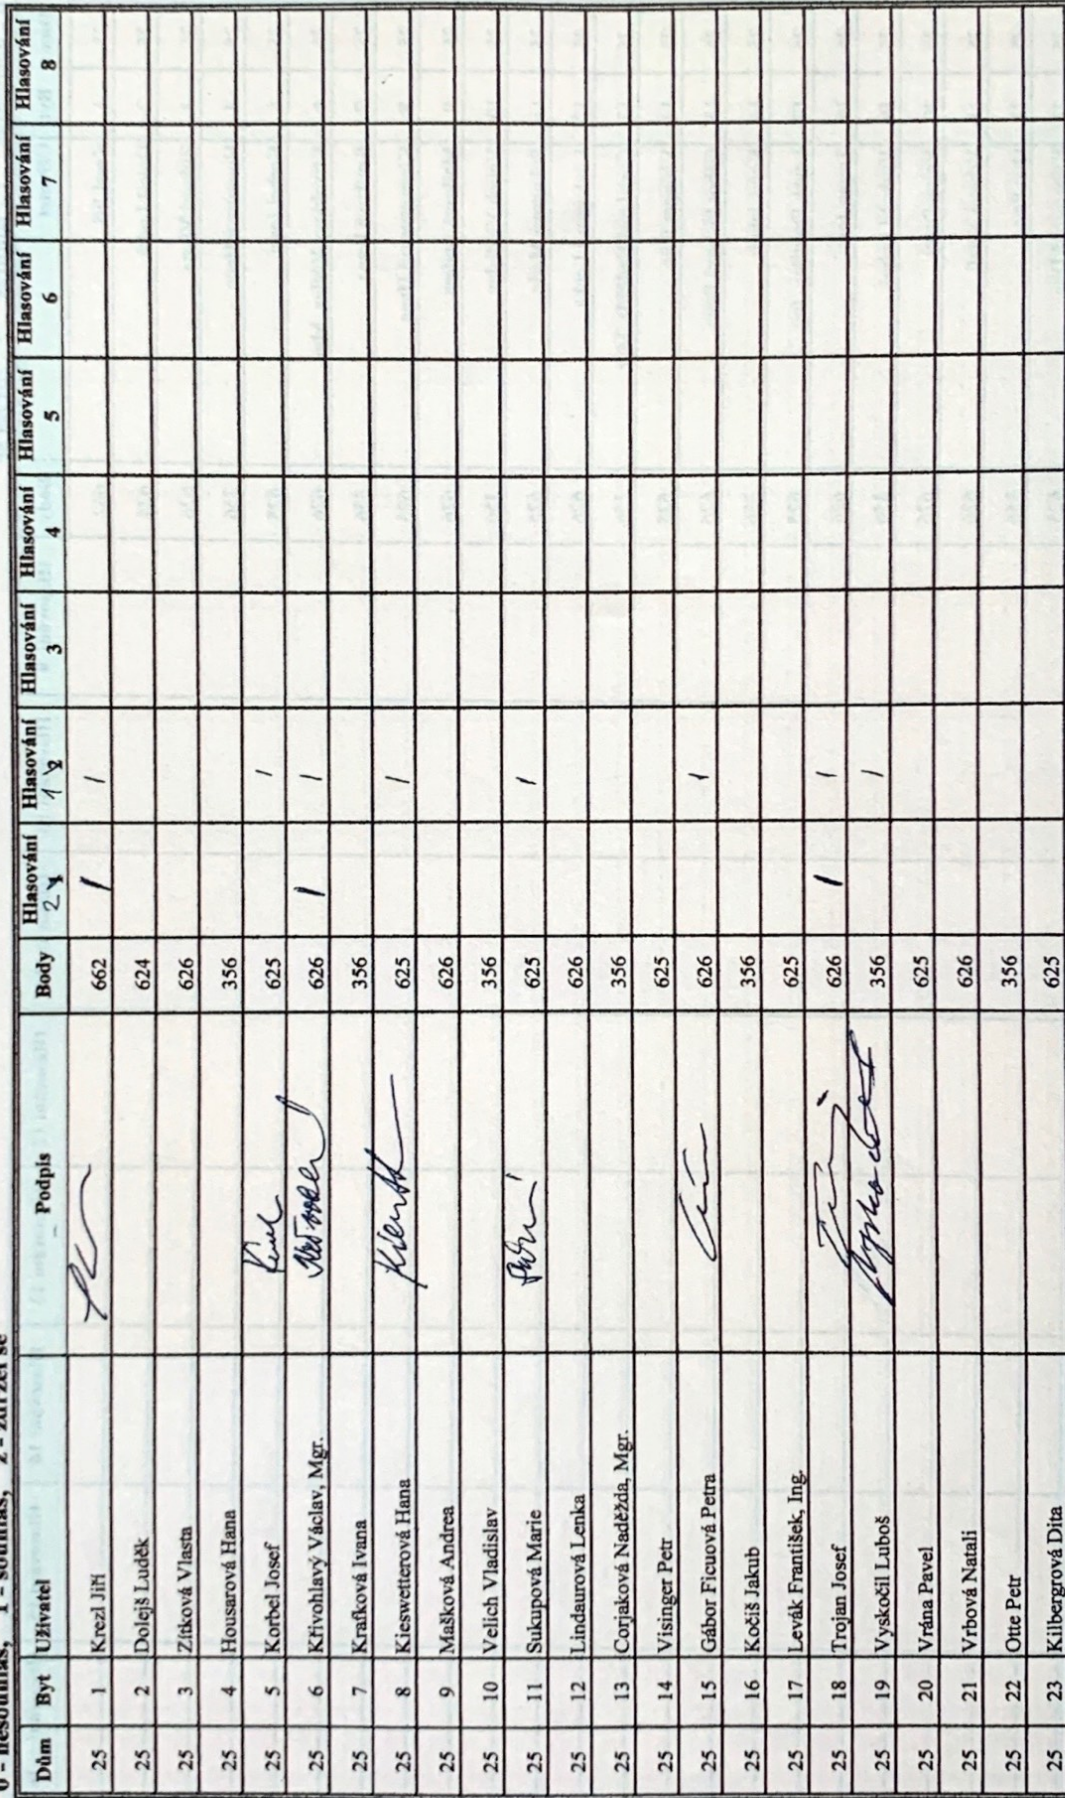 0 - nesouhlas, 1 - souhlas, 2 - zdržel se
Dům Byt Uživatel Podpis Body Hlasování 2 Hlasování 1 Hlasování 3 Hlasování 4 Hlasování 5 Hlasování 6 Hlasování 7 Hlasování 8
25 1 Krezl Jiří 662 1 1
25 2 Dolejš Luděk 624
25 3 Zítková Vlasta 626
25 4 Housarová Hana 356
25 5 Korbel Josef 625 1
25 6 Křivohlavý Václav, Mgr. 626 1 1
25 7 Krafková Ivana 356
25 8 Kieswetterová Hana 625 1
25 9 Mašková Andrea 626
25 10 Velich Vladislav 356
25 11 Sukupová Marie 625 1
25 12 Lindaurová Lenka 626
25 13 Corjaková Naděžda, Mgr. 356
25 14 Visinger Petr 625
25 15 Gábor Ficuová Petra 626 1
25 16 Kočiš Jakub 356
25 17 Levák František, Ing. 625
25 18 Trojan Josef 626 1 1
25 19 Vyskočil Luboš 356 1
25 20 Vrána Pavel 625
25 21 Vrbová Natali 626
25 22 Otte Petr 356
25 23 Kilbergrová Dita 625